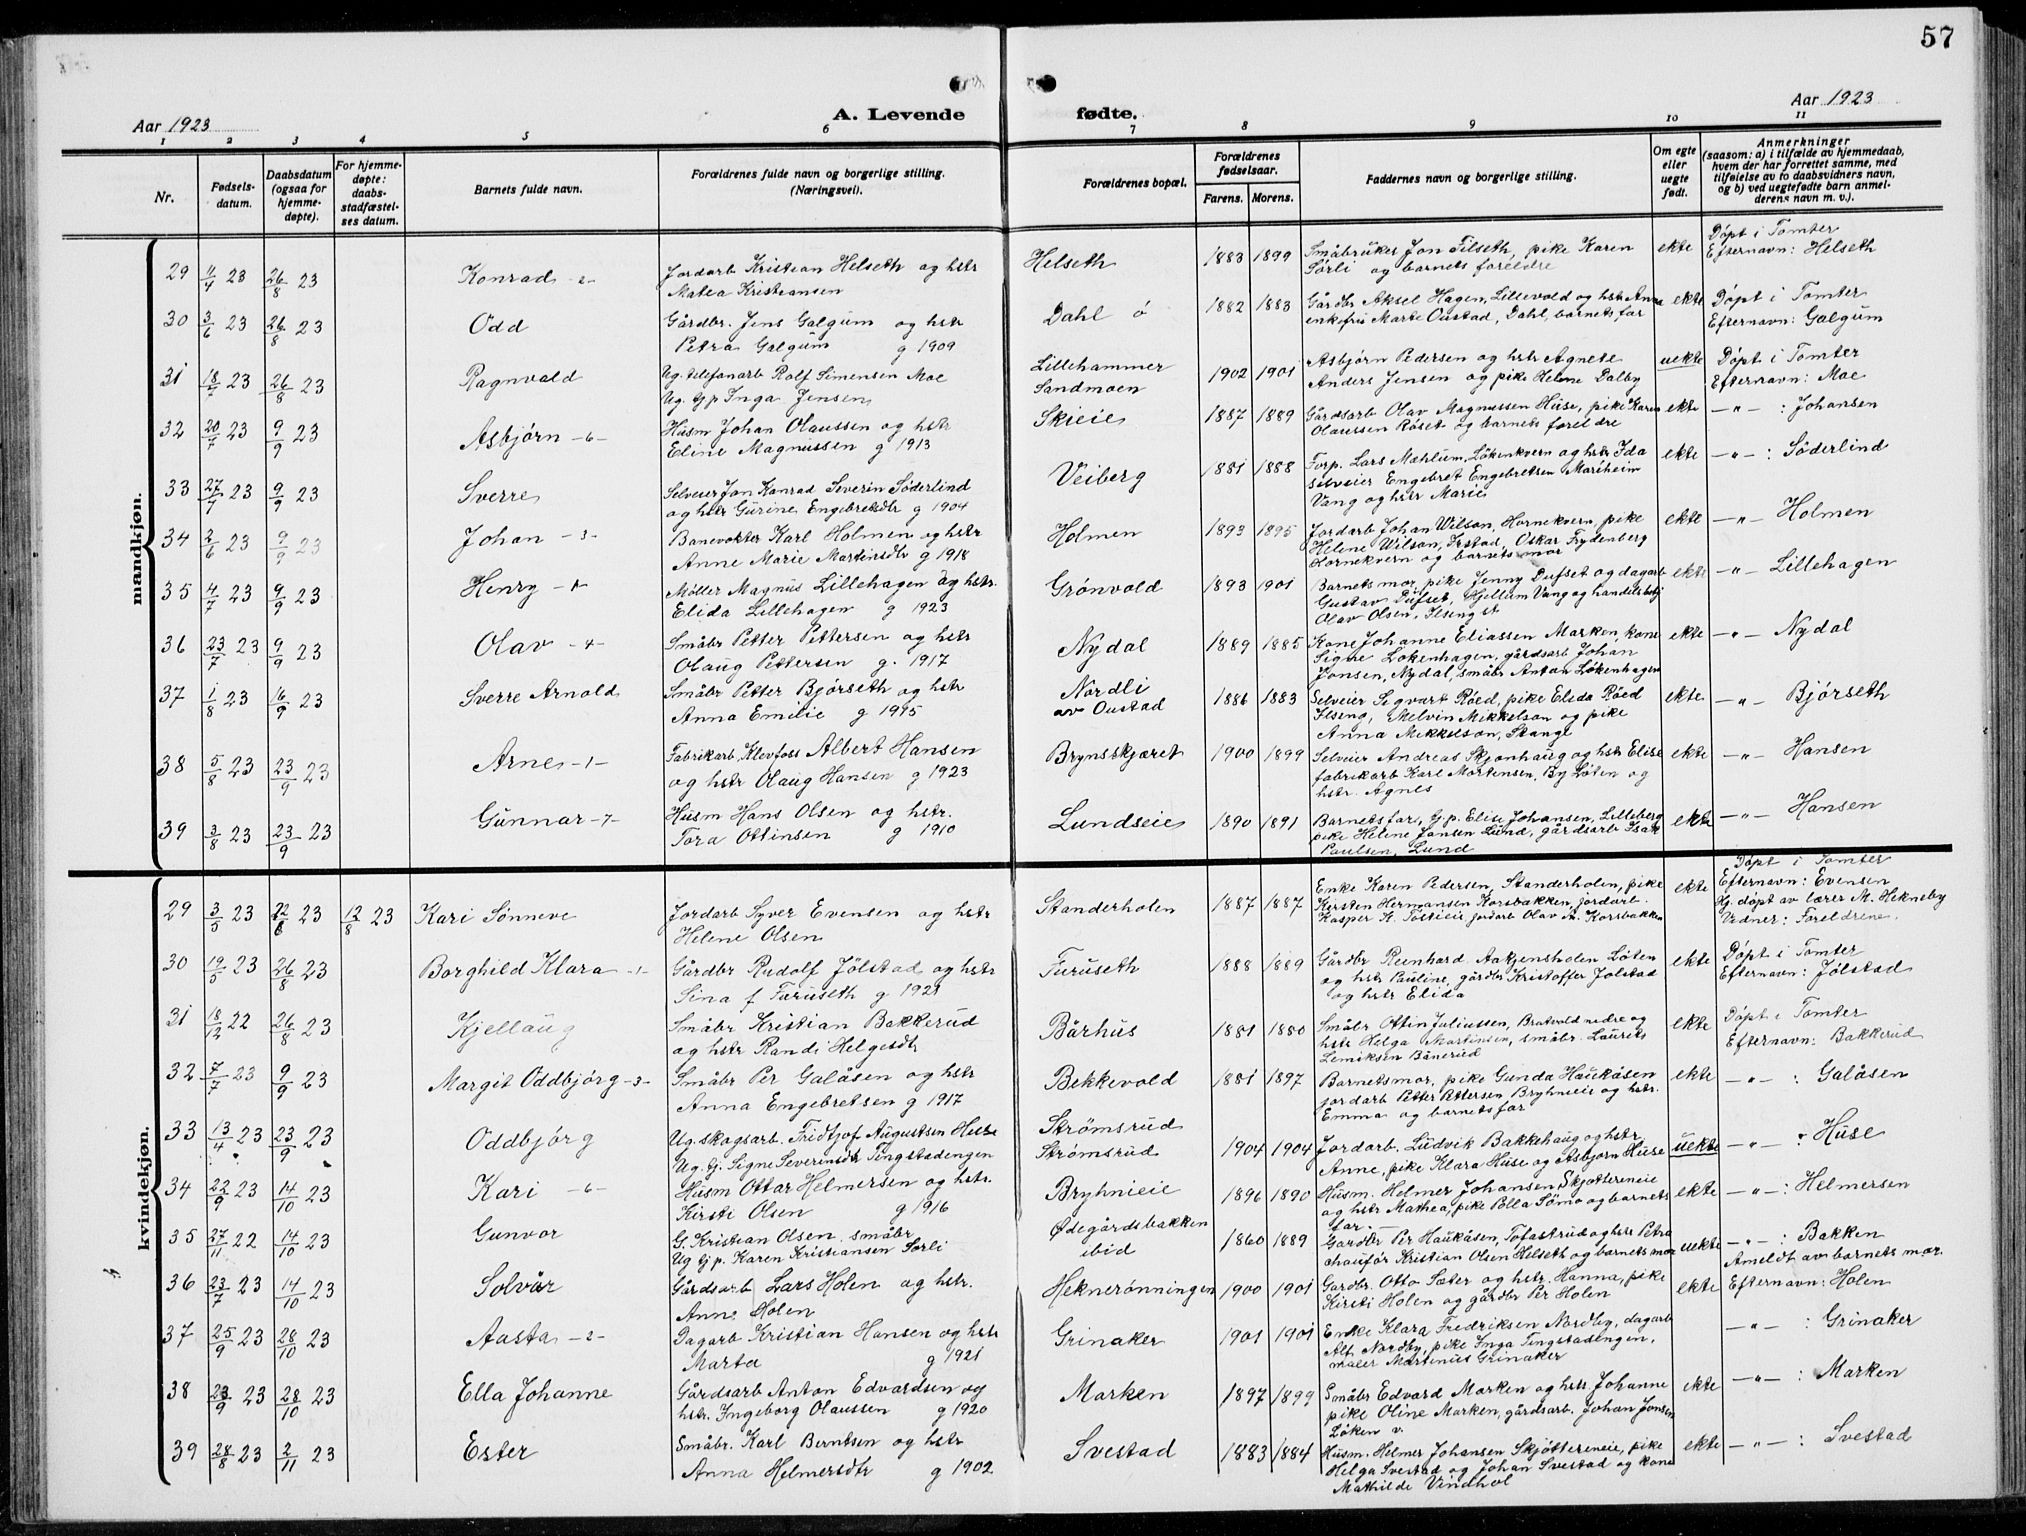 57
Aar 1923
A. Levende
fødte.
Aar 1923
1 2 3 4 5 6 7 8 9 10 11
Nr.
Fødsels-
datum.
Daabsdatum
(ogsaa for
hjemme-
døpte).
For hjemme-
døpte:
daabs-
stadfæstel-
ses datum.
Barnets fulde navn.
Forældrenes fulde navn og borgerlige stilling.
(Næringsvei).
Forældrenes bopæl.
Forældrenes
fødselsaar.
Farens. Morens.
Faddernes navn og borgerlige stilling.
Om egte
eller
uegte
født.
Anmerkninger
(saasom: a) i tilfælde av hjemmedaab,
hvem der har forrettet samme, med
tilføielse av to daabsvidners navn,
og b) ved uegtefødte barn anmel-
derens navn m. v.).
mandkjøn.
29 11/4 23 26/8 23 Konrad -2- Jordarb Kristian Helseth og hstr
Matea Kristiansen
Helseth 1883 1899 Småbruker Jon Tilseth, pike Karen
Sørli og barnets foreldre
ekte Døpt i Tomter
Efternavn: Helseth
30 3/6 23 26/8 23 Odd Gårdbr. Jens Galgum og hstr
Petra Galgum g 1909
Dahl ø 1882 1883 Gårdbr Aksel Hagen, Lillevold og hstr Anna
enkefru Marte Oustad, Dahl, barnets far
ekte Døpt i Tomter
Efternavn: Galgum
31 18/7 23 26/8 23 Ragnvald Ug. telefonarb Rolf Simensen Moe
Ug. Gjp Inga Jensen
Lillehammer
Sandmoen
1902 1901 Asbjørn Pedersen og hstr Agnete
Anders Jensen og pike Helene Dalby
uekte Døpt i Tomter
Efternavn: Moe
32 20/7 23 9/9 23 Asbjørn -6- Husm Johan Olaussen og hstr
Eline Magnussen g 1913
Skieie 1887 1889 Gårdsarb Olav Magnussen Huse, pike Karen
Olaussen Røset og barnets foreldre
ekte -"- : Johansen
33 27/7 23 9/9 23 Sverre Selveier Jon Konrad Severin Söderlind
og hstr Gurine Engebretsdtr g 1904
Veiberg 1881 1888 Forp. Lars Mæhlum, Løkenkvern og hstr Ida
selveier Engebret Engebretsen Mariheim
Vang og hstr Marie
ekte -"- : Söderlind
34 2/6 23 9/9 23 Johan -3- Banevokter Karl Holmen og hstr
Anne Marie Martinsdtr g 1918
Holmen 1893 1895 Jordarb Johan Wilson, Hornekvern, pike
Helene Wilson, Irstad, Oskar Frydenberg
Hornekvern og barnets mor
ekte -"- Holmen
35 4/7 23 9/9 23 Henry -1- Møller Magnus Lillehagen og hstr.
Elida Lillehagen g 1923
Grønvold 1893 1901 Barnets mor, pike Jenny Dufset og dagarb
Gustav Dufset, Hjellum Vang og handelsbetj
Olav Olsen, Ilseng st
ekte -"- Lillehagen
36 23/7 23 9/9 23 Olav -4- Småbr Petter Pettersen og hstr
Olaug Pettersen g. 1917
Nydal 1889 1885 Kone Johanne Eliassen Marken, kone
Signe Løkenhagen, gårdsarb Johan
Jonsen, Nydal, småbr Anton Løkenhagen
ekte -"- Nydal
37 1/8 23 16/9 23 Sverre Arnold Småbr Petter Bjørseth og hstr
Anna Emilie g 1915
Nordli
av Oustad
1886 1883 Selveier Sigvart Røed, pike Elida Røed
Ilseng, Melvin Mikkelson og pike
Anna Mikkelson, Stange
ekte -"- Bjørseth
38 5/8 23 23/9 23 Arne -1- Fabrikarb, Klevfoss Albert Hansen
og hstr Olaug Hansen g 1923
Brynsskjæret 1900 1899 Selveier Andreas Skjønhaug og hstr Elise
fabrikarb Karl Mortensen, By Løten og
hstr. Agnes
ekte -"- Hansen
39 3/8 23 23/9 23 Gunnar -7- Husm Hans Olsen og hstr.
Tora Ottinsen g 1910
Lundseie 1890 1891 Barnets far, Gjp. Elise Johansen, Lilleberg
pike Helene Jansen Lund, gårdsarb Isak
Paulsen, Lund
ekte -"- Hansen
kvindekjøn.
29 3/5 23 22/6 23 12/8 23 Kari Sønneve Jordarb Syver Evensen og hstr
Helene Olsen
Standerholen 1887 1887 Enke Karen Pedersen, Standerholen, pike
Kirsten Hermansen Korsbakken, jordarb.
Kasper K. Tøstieie jordarb Olav A. Korsbakken
ekte Døpt i Tomter
Efternavn: Evensen
Hj. døpt av lærer M. Hekneby
Vidner: Foreldrene.
30 19/5 23 26/8 23 Borghild Klara -1- Gårdbr Rudolf Jølstad og hstr
Sina f Furuseth g 1921
Furuseth 1888 1889 Gårdbr Reinhard Aatjernsholen Løten
og hstr Pauline, gårdbr Kristoffer Jølstad
og hstr Elida
ekte Døpt i Tomter
Efternavn: Jølstad
31 18/12 22 26/8 23 Kjellaug Småbr Kristian Bakkerud
og hstr Randi Helgesdtr
Bårhus 1881 1880 Småbr Ottin Juliussen, Bratvold nedre og
hstr Helga Martinsen, småbr. Laurits
Lemiksen Bånerud
ekte Døpt i Tomter
Efternavn: Bakkerud
32 7/7 23 9/9 23 Margit Oddbjørg -3- Småbr Per Galåsen og hstr
Anna Engebretsen g 1917
Bekkevold 1881 1897 Barnets mor, pike Gunda Haukåsen
jordarb Petter Pettersen Bryhnieie og hstr.
Emma og barnets far
ekte -"- : Galåsen
33 13/4 23 23/9 23 Oddbjørg Ug. skogsarb. Fridtjof Augustsen Huse
Ug. Gj. Signe Severinsdtr Tingstadengen
Strømsrud
Strømsrud
1904 1904 Jordarb. Ludvik Bakkehaug og hstr
Anne, pike Klara Huse og Asbjørn Huse
uekte -"- : Huse
34 23/9 23 14/10 23 Kari -6- Husm Ottar Helmersen og hstr.
Kirsti Olsen g 1916
Bryhnieie 1896 1890 Husm. Helmer Johansen Skjøttereneie
og hstr Mathea, pike Polla Sömo og barnets
far. -
ekte -"- : Helmersen
35 27/11 22 14/10 23 Gunvor G. Kristian Olsen, småbr
Ug Gjp. Karen Kristiansen Sørli
Ødegårdsbakken
ibid
1860 1889 Gardbr Per Haukåsen, Tofastrud og hstr Petra
chaufør Kristian Olsen Helseth og barnets mor
uekte -"- : Bakken
Ameldt av barnets mor.
36 23/7 23 14/10 23 Solvår Gårdsarb Lars Holen og hstr.
Anne Holen
Heknerønningen 1900 1901 Gardbr Otto Sæter og hstr. Hanna, pike
Kirsti Holen og gårdbr Per Holen
ekte Efternavn: Holen
37 25/9 23 28/10 23 Aasta -2- Dagarb Kristian Hansen og hstr
Marta g 1921
Grinaker 1901 1901 Enke Klara Fredriksen Nordby, dagarb
Alf Nordby, pike Inga Tingstadengen,
maler Martinus Grinaker
-"- : Grinaker
38 23/9 23 28/10 23 Ella Johanne Gårdsarb Anton Edvardsen og
hstr. Ingeborg Olaussen g 1920
Marken 1897 1899 Småbr Edvard Marken og hstr Johanne
pike Oline Marken, gårdsarb. Johan Jonsen
Løken v.
ekte -"- : Marken
39 28/8 23 2/11 23 Ester Småbr. Karl Berntsen og hstr
Anna Helmersdtr g 1902
Svestad 1883 1884 Husm. Helmer Johansen Skjøttereneie, pike
Helga Svestad og Johan Svestad og kone
Mathilde Vindhol
ekte -"- : Svestad